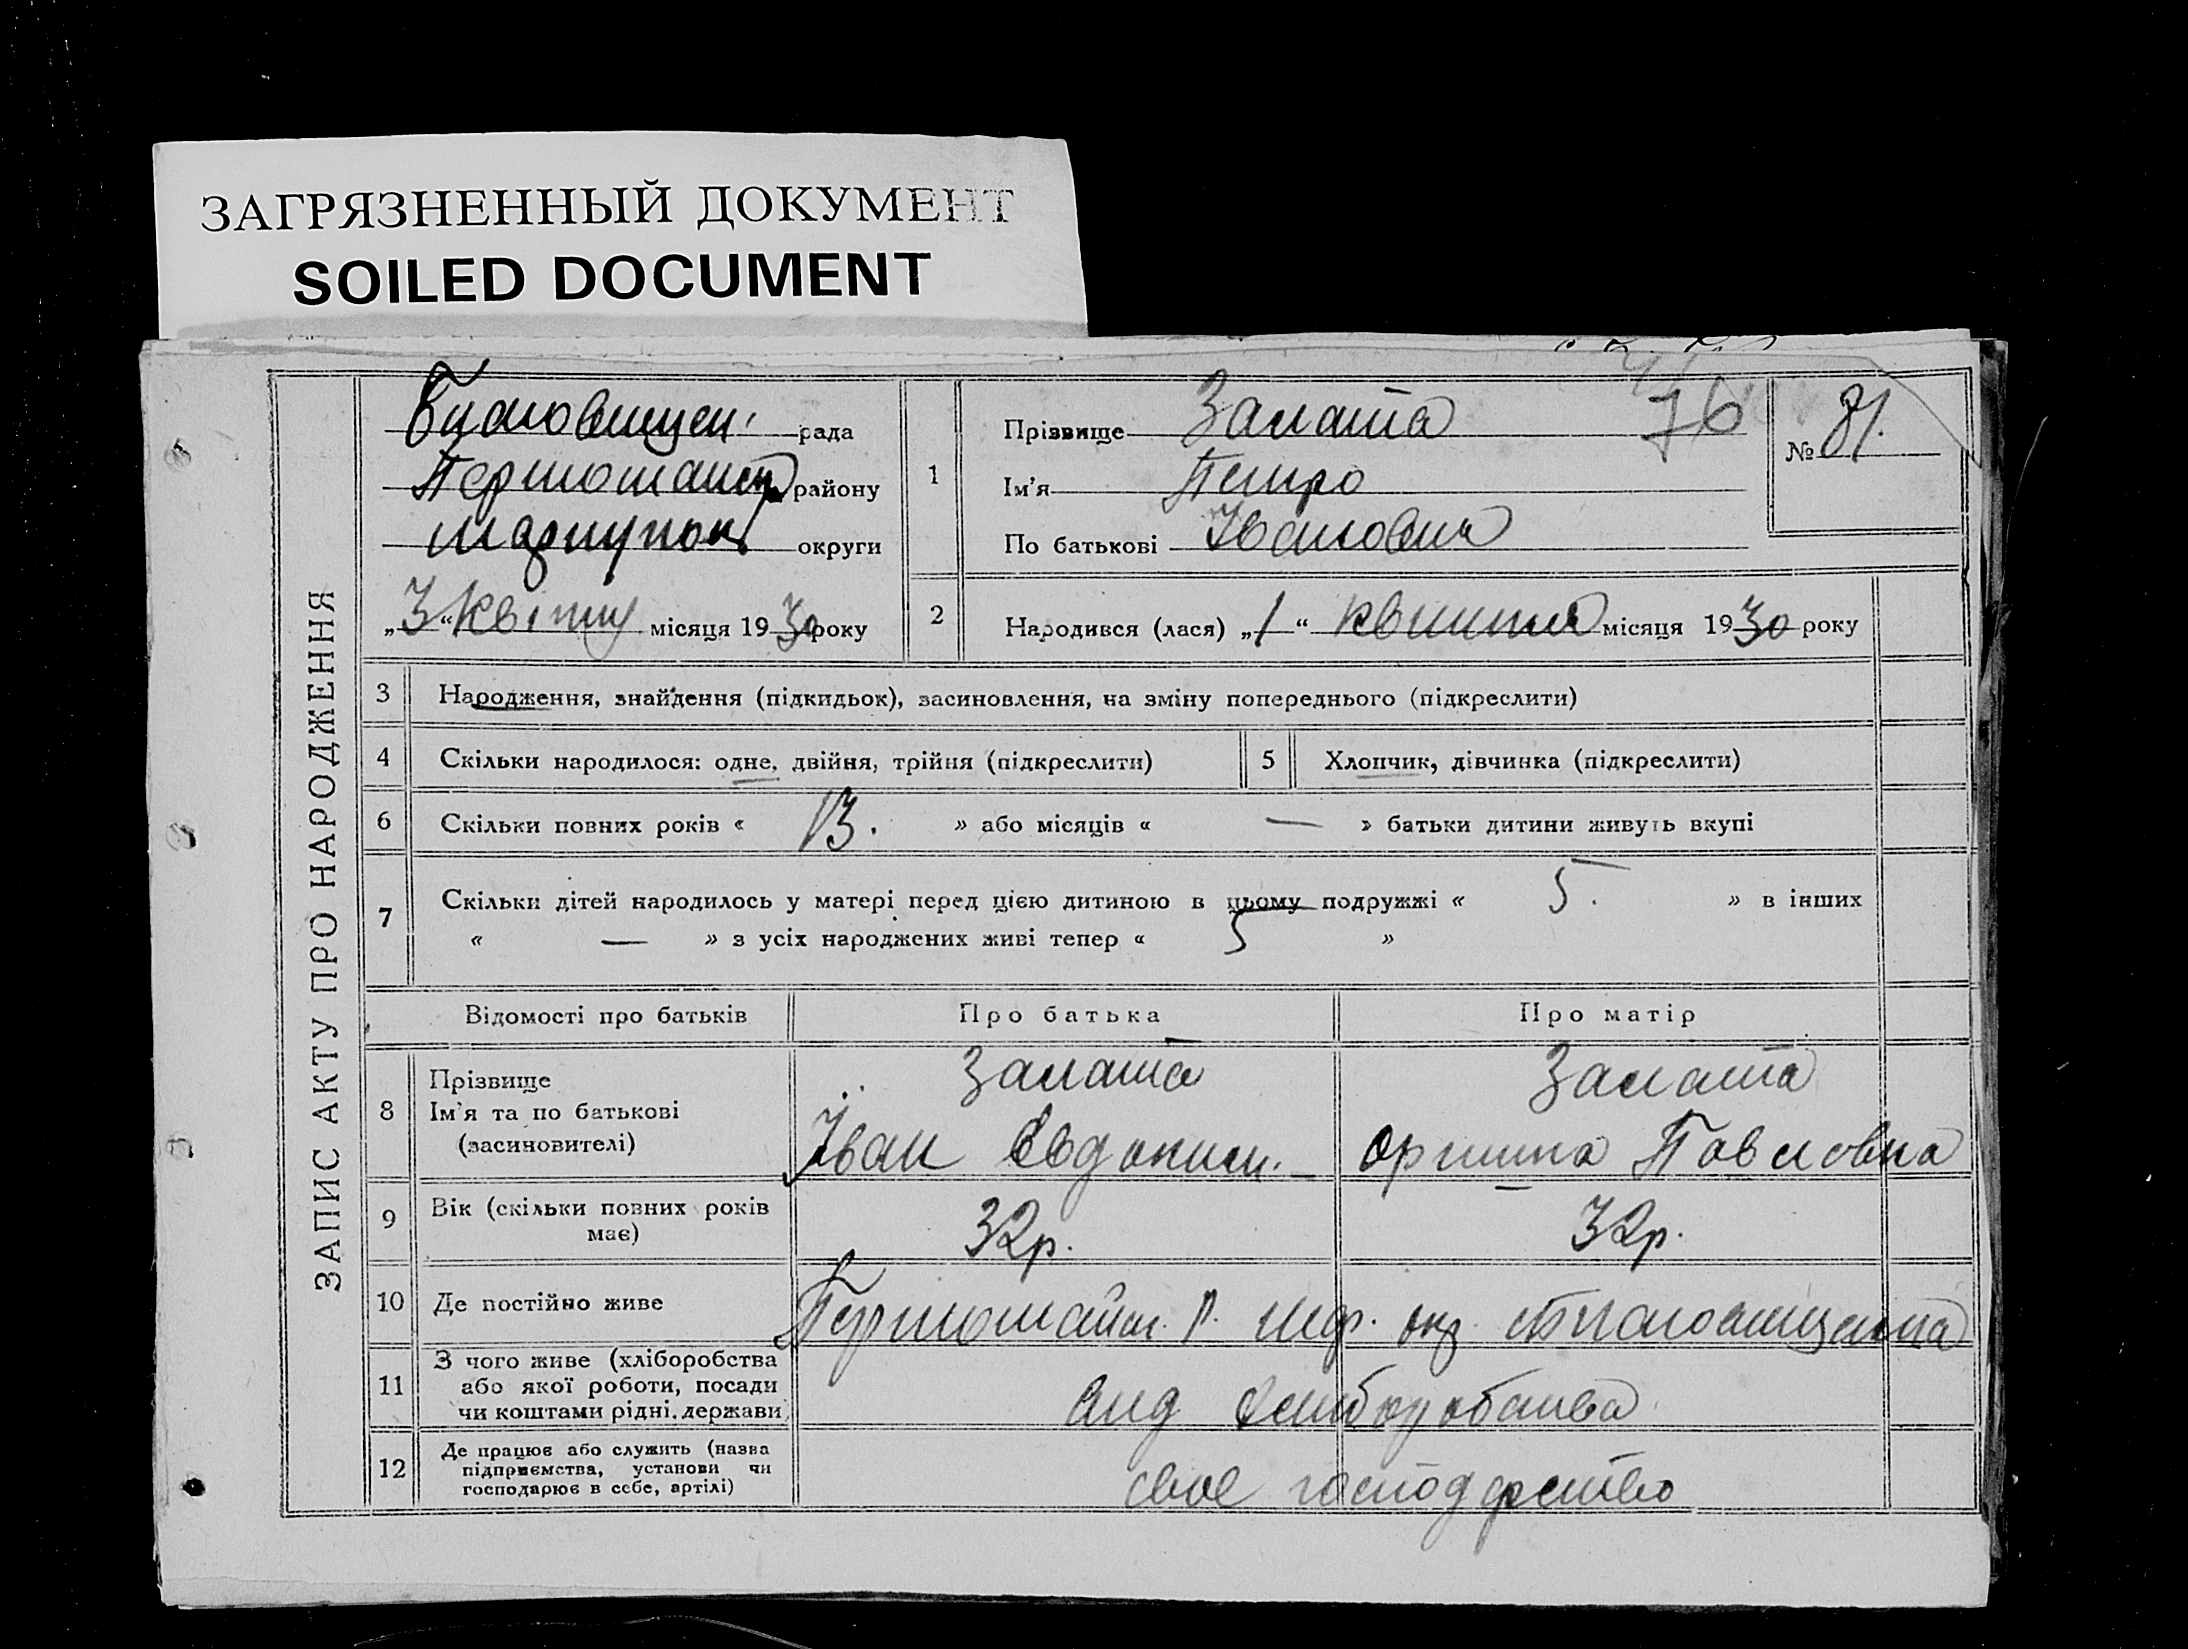 ЗАГРЯЗНЕННЫЙ ДОКУМЕНТ
SOILED DOCUMENT
ЗАПИС АКТУ ПРО НАРОДЖЕННЯ
Благовищен. рада
Першомайск району
Маріупол округи
„3“ Квітня місяця 1930 року
1
Прізвище Халата 76
Ім'я Петро
По батькові Іванович
№ 81.
2 Народився (лася) „1“ квитня місяця 1930 року
3 Народження, знайдення (підкидьок), засиновлення, на зміну попереднього (підкреслити)
4 Скільки народилося: одне, двійня, трійня (підкреслити) 5 Хлопчик, дівчинка (підкреслити)
6 Скільки повних років « 13. » або місяців « — » батьки дитини живуть вкупі
7 Скільки дітей народилось у матері перед цією дитиною в цьому подружжі « 5. » в інших
« — » з усіх народжених живі тепер « 5 »
Відомості про батьків Про батька Про матір
8 Прізвище
Ім'я та по батькові
(засиновителі)
Залата Залата
Іван Евдоким. Оришка Павловна
9 Вік (скільки повних років має) 32р. 32р.
10 Де постійно живе Першомайск. Р. Мар. окр.
11 З чого живе (хліборобства
або якої роботи, посади
чи коштами рідні, держави)
від хлиборобства
12 Де працює або служить (назва
підприємства, установи чи
господарює в себе, артілі)
свое господарство